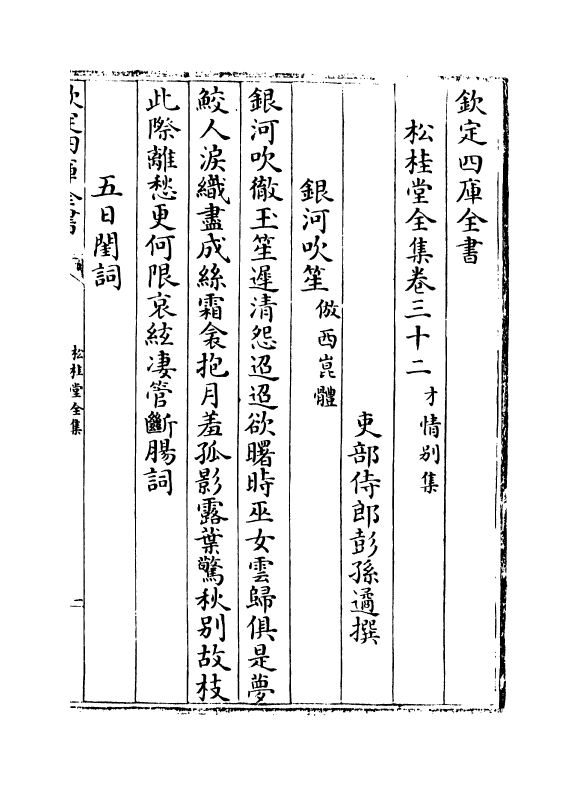 欽定四庫全書
松桂堂全集卷三十二 才情別集
吏部侍郎彭孫遹撰
銀河吹笙 倣西崑體
銀河吹徹玉笙遲清怨迢迢欲曙時巫女雲歸俱是夢
鮫人淚織盡成絲霜衾抱月羞孤影露葉驚秋別故枝
此際離愁更何限哀絃淒管斷腸詞
五日閨詞
欽定四庫全書
松桂堂全集